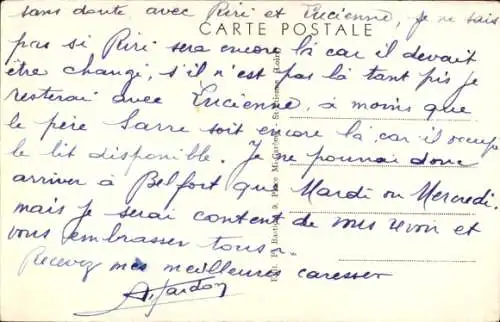 sans doute avec Riri et Lucienne, je ne sais
CARTE POSTALE
pas si Riri sera encore là car il devait
être changé, s'il n'est pas là tant pis je
resterai avec Lucienne, à moins que
le père Sarre soit encore là, car il occupe
le lit disponible. Je ne pourrai donc
arriver à Belfort que Mardi ou Mercredi.
mais je serai content de vous revoir et
vous embrasser tous.
Recevez mes meilleures caresses